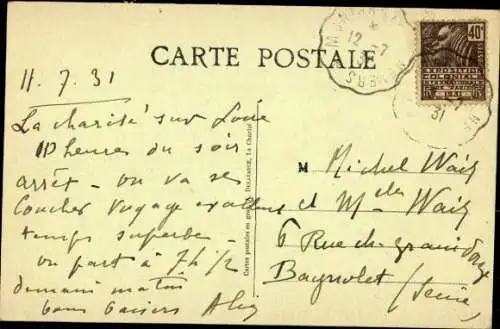 CARTE POSTALE
11.7.31
La charité sur Loire
10 heures du soir
arrêt - on va se
coucher voyage excellent
temps superbe -
on part à 7h 1/2
demain matin
bons baisers
Cartes postales en gros. DELAYANCE, La Charité
40c
EXPOSITION
COLONIALE
INTERNATIONALE
PARIS 1931
12
31
M Michel Weill
et Mlle Weill
6 Rue de
Bagnolet
(Seine)